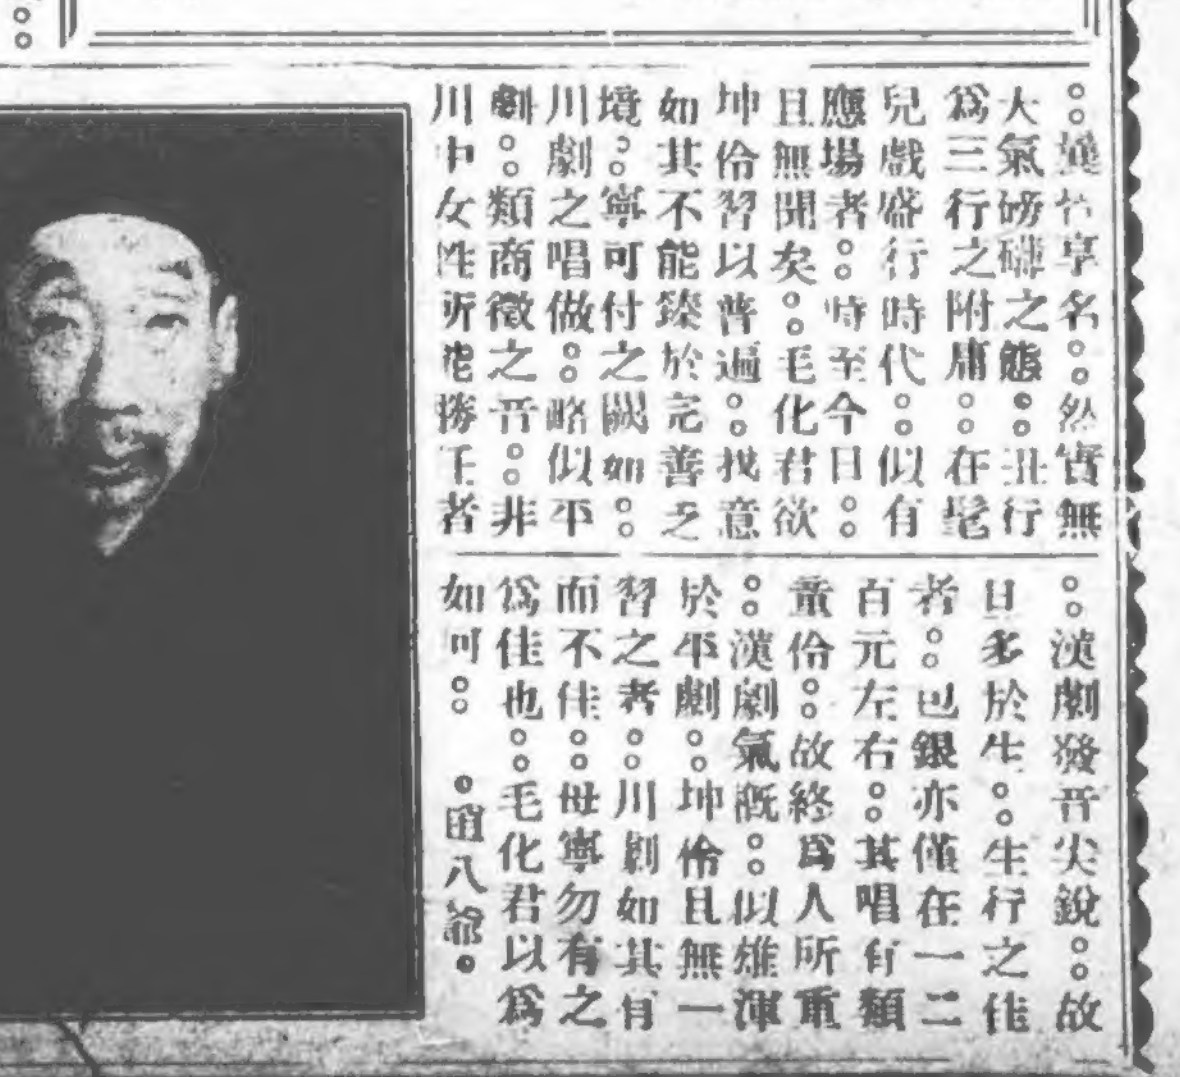 。。享名。。然實無
大氣磅礴之態。。丑行
爲三行之附庸。。在髦
兒戲盛行時代。。似有
應場者。。時至今日。。
且無聞矣。。毛化君欲
坤伶習以普遍。。我意
如其不能臻於完善之
境。。寧可付之闕如。。
川劇之唱做。。略似平
劇。。類商徵之音。。非
川中女性所能勝任者
。。漢劇發音尖銳。。故
旦多於生。。生行之佳
者。。包銀亦僅在一二
百元左右。。其唱有類
童伶。。故終爲人所重
。。漢劇氣概。。似雄渾
於平劇。。坤伶且無一
習之者。。川劇如其有
而不佳。。毋寧勿有之
爲佳也。。毛化君以爲
如何。。
。八爺。